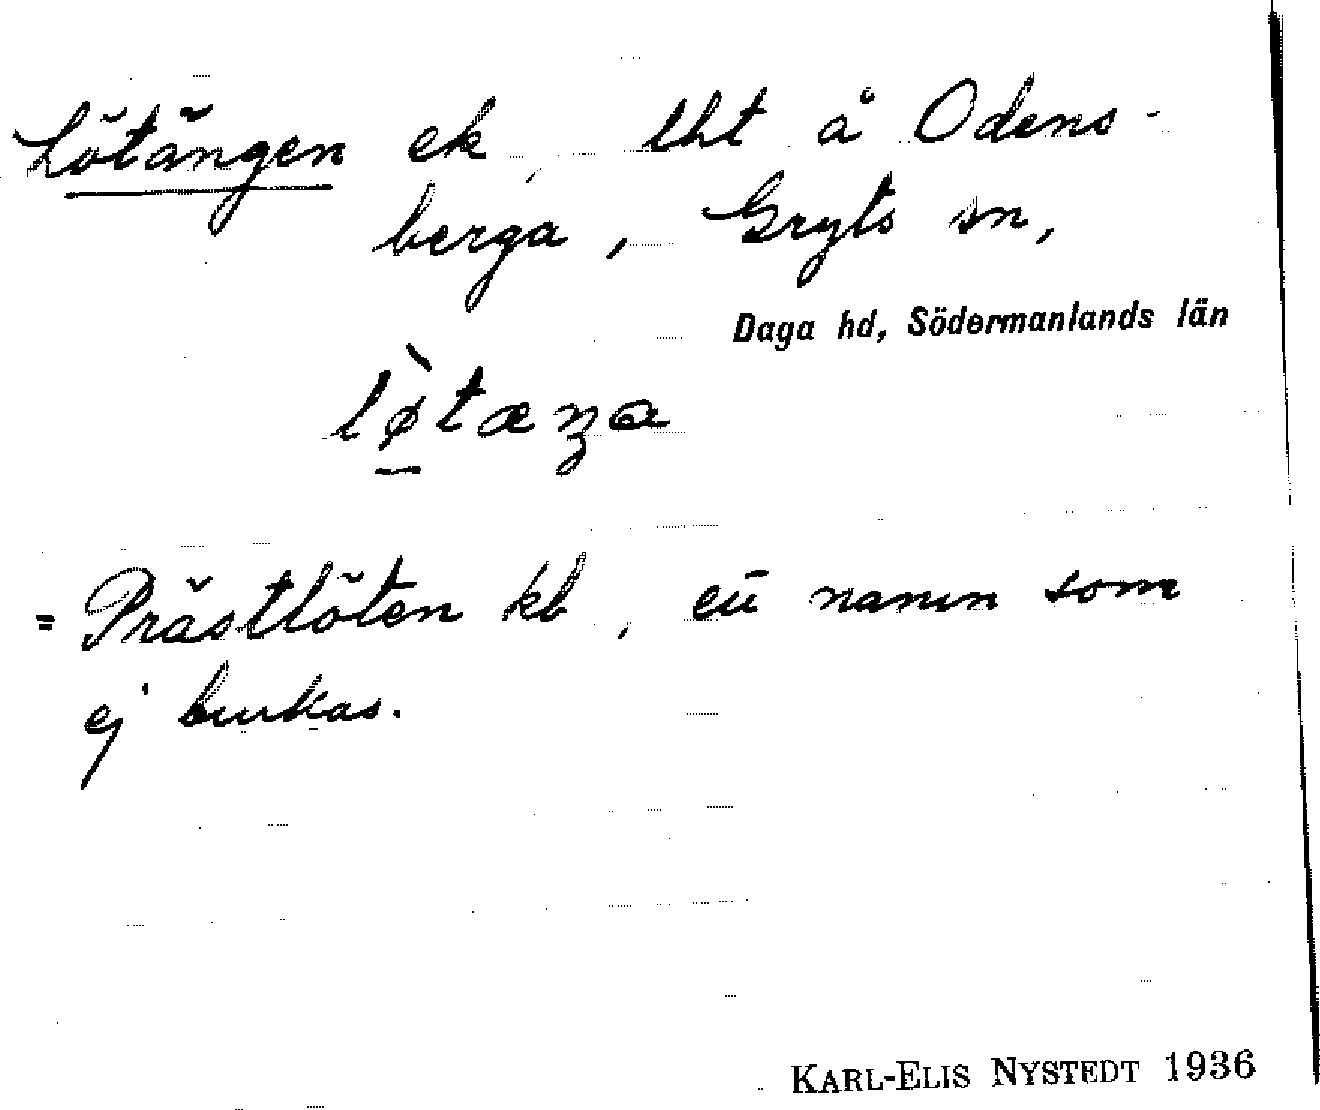 Lötängen ek, lht å Odens-
berga, Gryts sn,
Daga hd, Södermanlands län
lø̀tæŋa
= Prästlöten kb, ett namn som
ej brukas.
KARL-ELIS NYSTEDT 1936